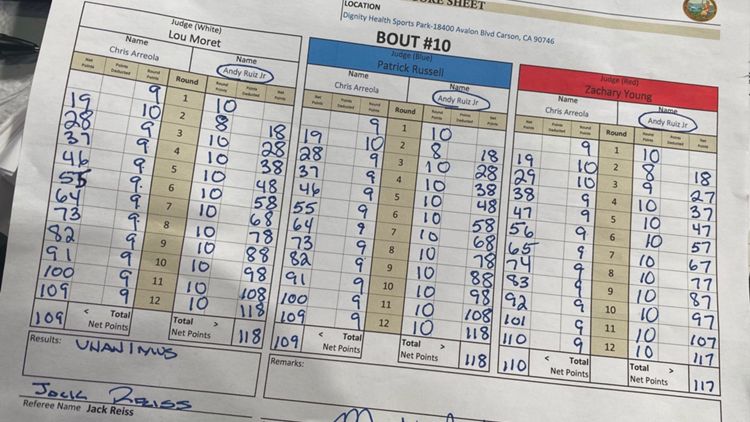 SHEET
LOCATION
Dignity Health Sports Park-18400 Avalon Blvd Carson, CA 90746
BOUT #10
Judge (White)
Lou Moret
Name Name
Chris Arreola Andy Ruiz Jr
Net Points Points Deducted Round Points Round Round Points Points Deducted Net Points
9 1 10
19 10 2 8 18
28 9 3 10 28
37 9 4 10 38
46 9 5 10 48
55 9 6 10 58
64 9 7 10 68
73 9 8 10 78
82 9 9 10 88
91 9 10 10 98
100 9 11 10 108
109 9 12 10 118
109 < Total Net Points Total > Net Points 118
Results: UNANIMUS
Jack Reiss
Referee Name Jack Reiss
Judge (Blue)
Patrick Russell
Name Name
Chris Arreola Andy Ruiz Jr
Net Points Points Deducted Round Points Round Round Points Points Deducted Net Points
9 1 10
19 10 2 8 18
28 9 3 10 28
37 9 4 10 38
46 9 5 10 48
55 9 6 10 58
64 9 7 10 68
73 9 8 10 78
82 9 9 10 88
91 9 10 10 98
100 9 11 10 108
109 9 12 10 118
109 < Total Net Points Total > Net Points 118
Remarks:
Judge (Red)
Zachary Young
Name Name
Chris Arreola Andy Ruiz Jr
Net Points Points Deducted Round Points Round Round Points Points Deducted Net Points
9 1 10
19 10 2 8 18
29 10 3 9 27
38 9 4 10 37
47 9 5 10 47
56 9 6 10 57
65 9 7 10 67
74 9 8 10 77
83 9 9 10 87
92 9 10 10 97
101 9 11 10 107
110 9 12 10 117
110 < Total Net Points Total > Net Points 117